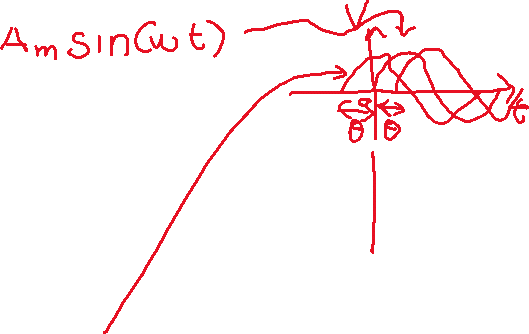 Am sin(ωt)
V
θ θ
t